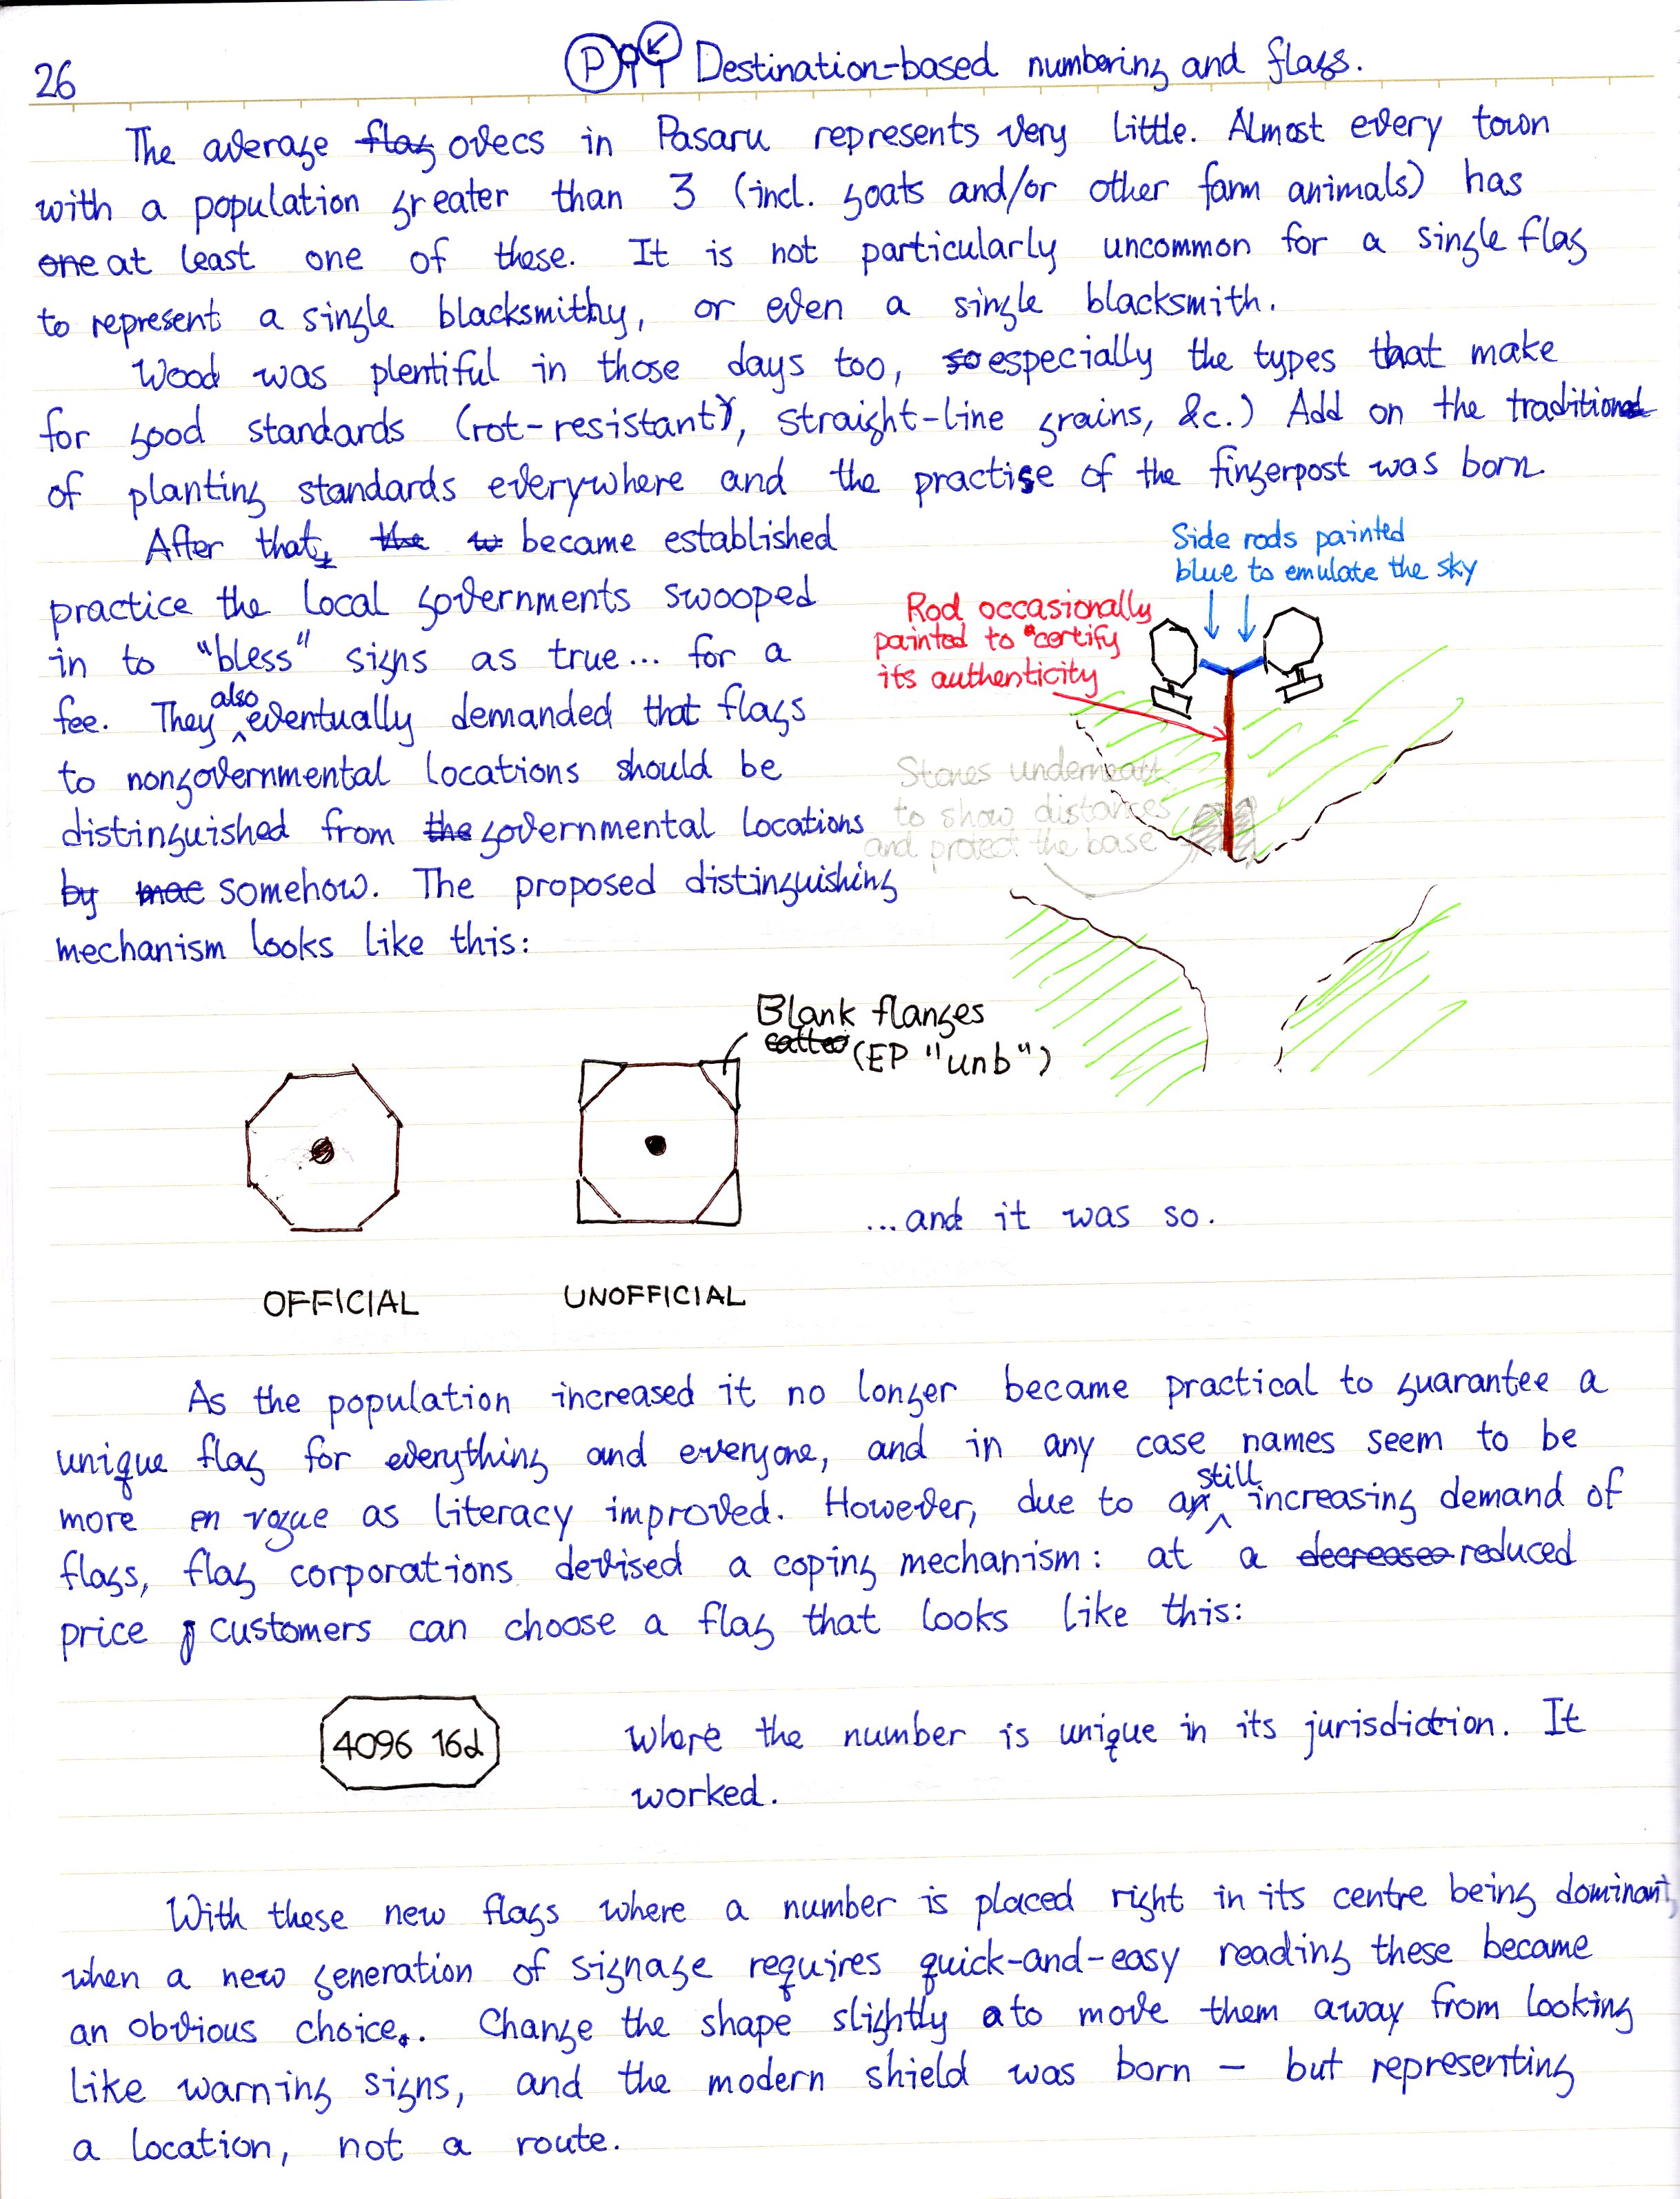 26
P Destination-based numbering and flags.
The average flag ovecs in Pasaru represents very little. Almost every town
with a population greater than 3 (incl. goats and/or other farm animals) has
one at least one of these. It is not particularly uncommon for a single flag
to represent a single blacksmithy, or even a single blacksmith.
Wood was plentiful in those days too, so especially the types that make
for good standards (rot-resistant, straight-line grains, &c.) Add on the tradition
of planting standards everywhere and the practise of the fingerpost was born.
After that, the became established
practice the local governments swooped
in to "bless" signs as true... for a
fee. They also eventually demanded that flags
to nongovernmental locations should be
distinguished from the governmental locations
by mac somehow. The proposed distinguishing
mechanism looks like this:
Side rods painted
blue to emulate the sky
Rod occasionally
painted to "certify
its authenticity
Stones underneath
to show distances
and protect the base
Blank flanges
called (EP "unb")
...and it was so.
OFFICIAL
UNOFFICIAL
As the population increased it no longer became practical to guarantee a
unique flag for everything and everyone, and in any case names seem to be
more en vogue as literacy improved. However, due to a still increasing demand of
flags, flag corporations devised a coping mechanism: at a decreased reduced
price customers can choose a flag that looks like this:
4096 16d
where the number is unique in its jurisdiction. It
worked.
With these new flags where a number is placed right in its centre being dominant,
when a new generation of signage requires quick-and-easy reading these became
an obvious choice. Change the shape slightly to move them away from looking
like warning signs, and the modern shield was born – but representing
a location, not a route.